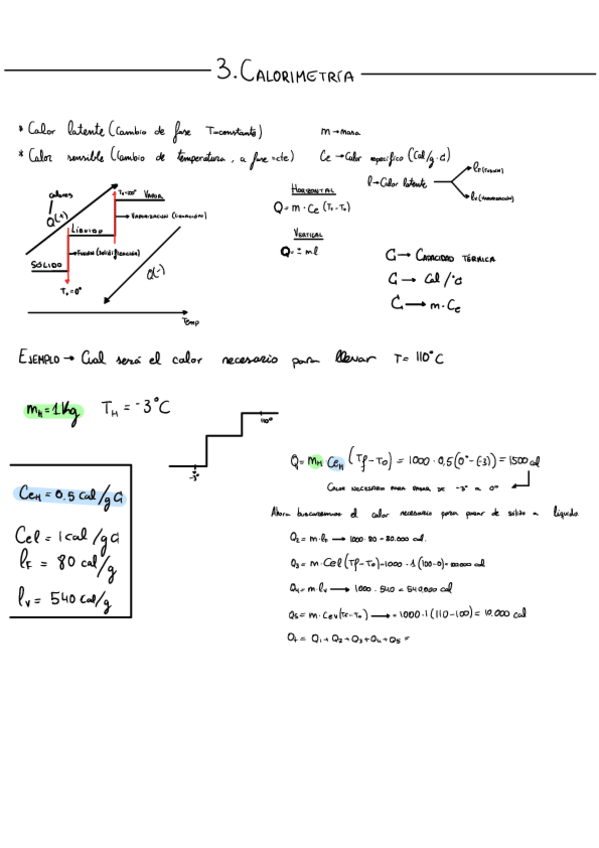 3. CALORIMETRÍA
* Calor latente (Cambio de fase T=constante)
m → masa
* Calor sensible (Cambio de temperatura, a fase=cte)
Ce → Calor específico (Cal/g·c)
l → Calor latente
lF (FUSIÓN)
lv (VAPORIZACIÓN)
calores
Q(+)
SÓLIDO
LÍQUIDO
VAPOR
→ VAPORIZACIÓN (LICUACIÓN)
→ FUSIÓN (Solidificación)
T₀=0°
Q(-)
Temp
HORIZONTAL
Q= m · Ce (Tf - To)
VERTICAL
Q = ± ml
C → CAPACIDAD TÉRMICA
C → Cal/°c
C → m·Ce
EJEMPLO → Cual será el calor necesario para llevar T= 110°C
mH = 1 Kg TH = -3°C
-3°
110°
CeH = 0.5 cal/g
Cel = 1 cal/g
lF = 80 cal/g
lv = 540 cal/g
Q= mH CeH (Tf - To) = 1000 · 0,5 (0° - (-3)) = 1500 cal
CALOR NECESARIO PARA PASAR DE -3° A 0°
Ahora buscaremos el calor necesario para pasar de sólido a líquido.
Q2 = m·lF → 1000 · 80 = 80.000 cal.
Q3 = m·Cel (Tf - To) = 1000 · 1 (100-0) = 100000 cal
Q4 = m·lv → 1000 · 540 = 540,000 cal
Q5 = m·Cev (Tf - To) → = 1000·1 (110-100) = 10.000 cal
Qt = Q1 + Q2 + Q3 + Q4 + Q5 =